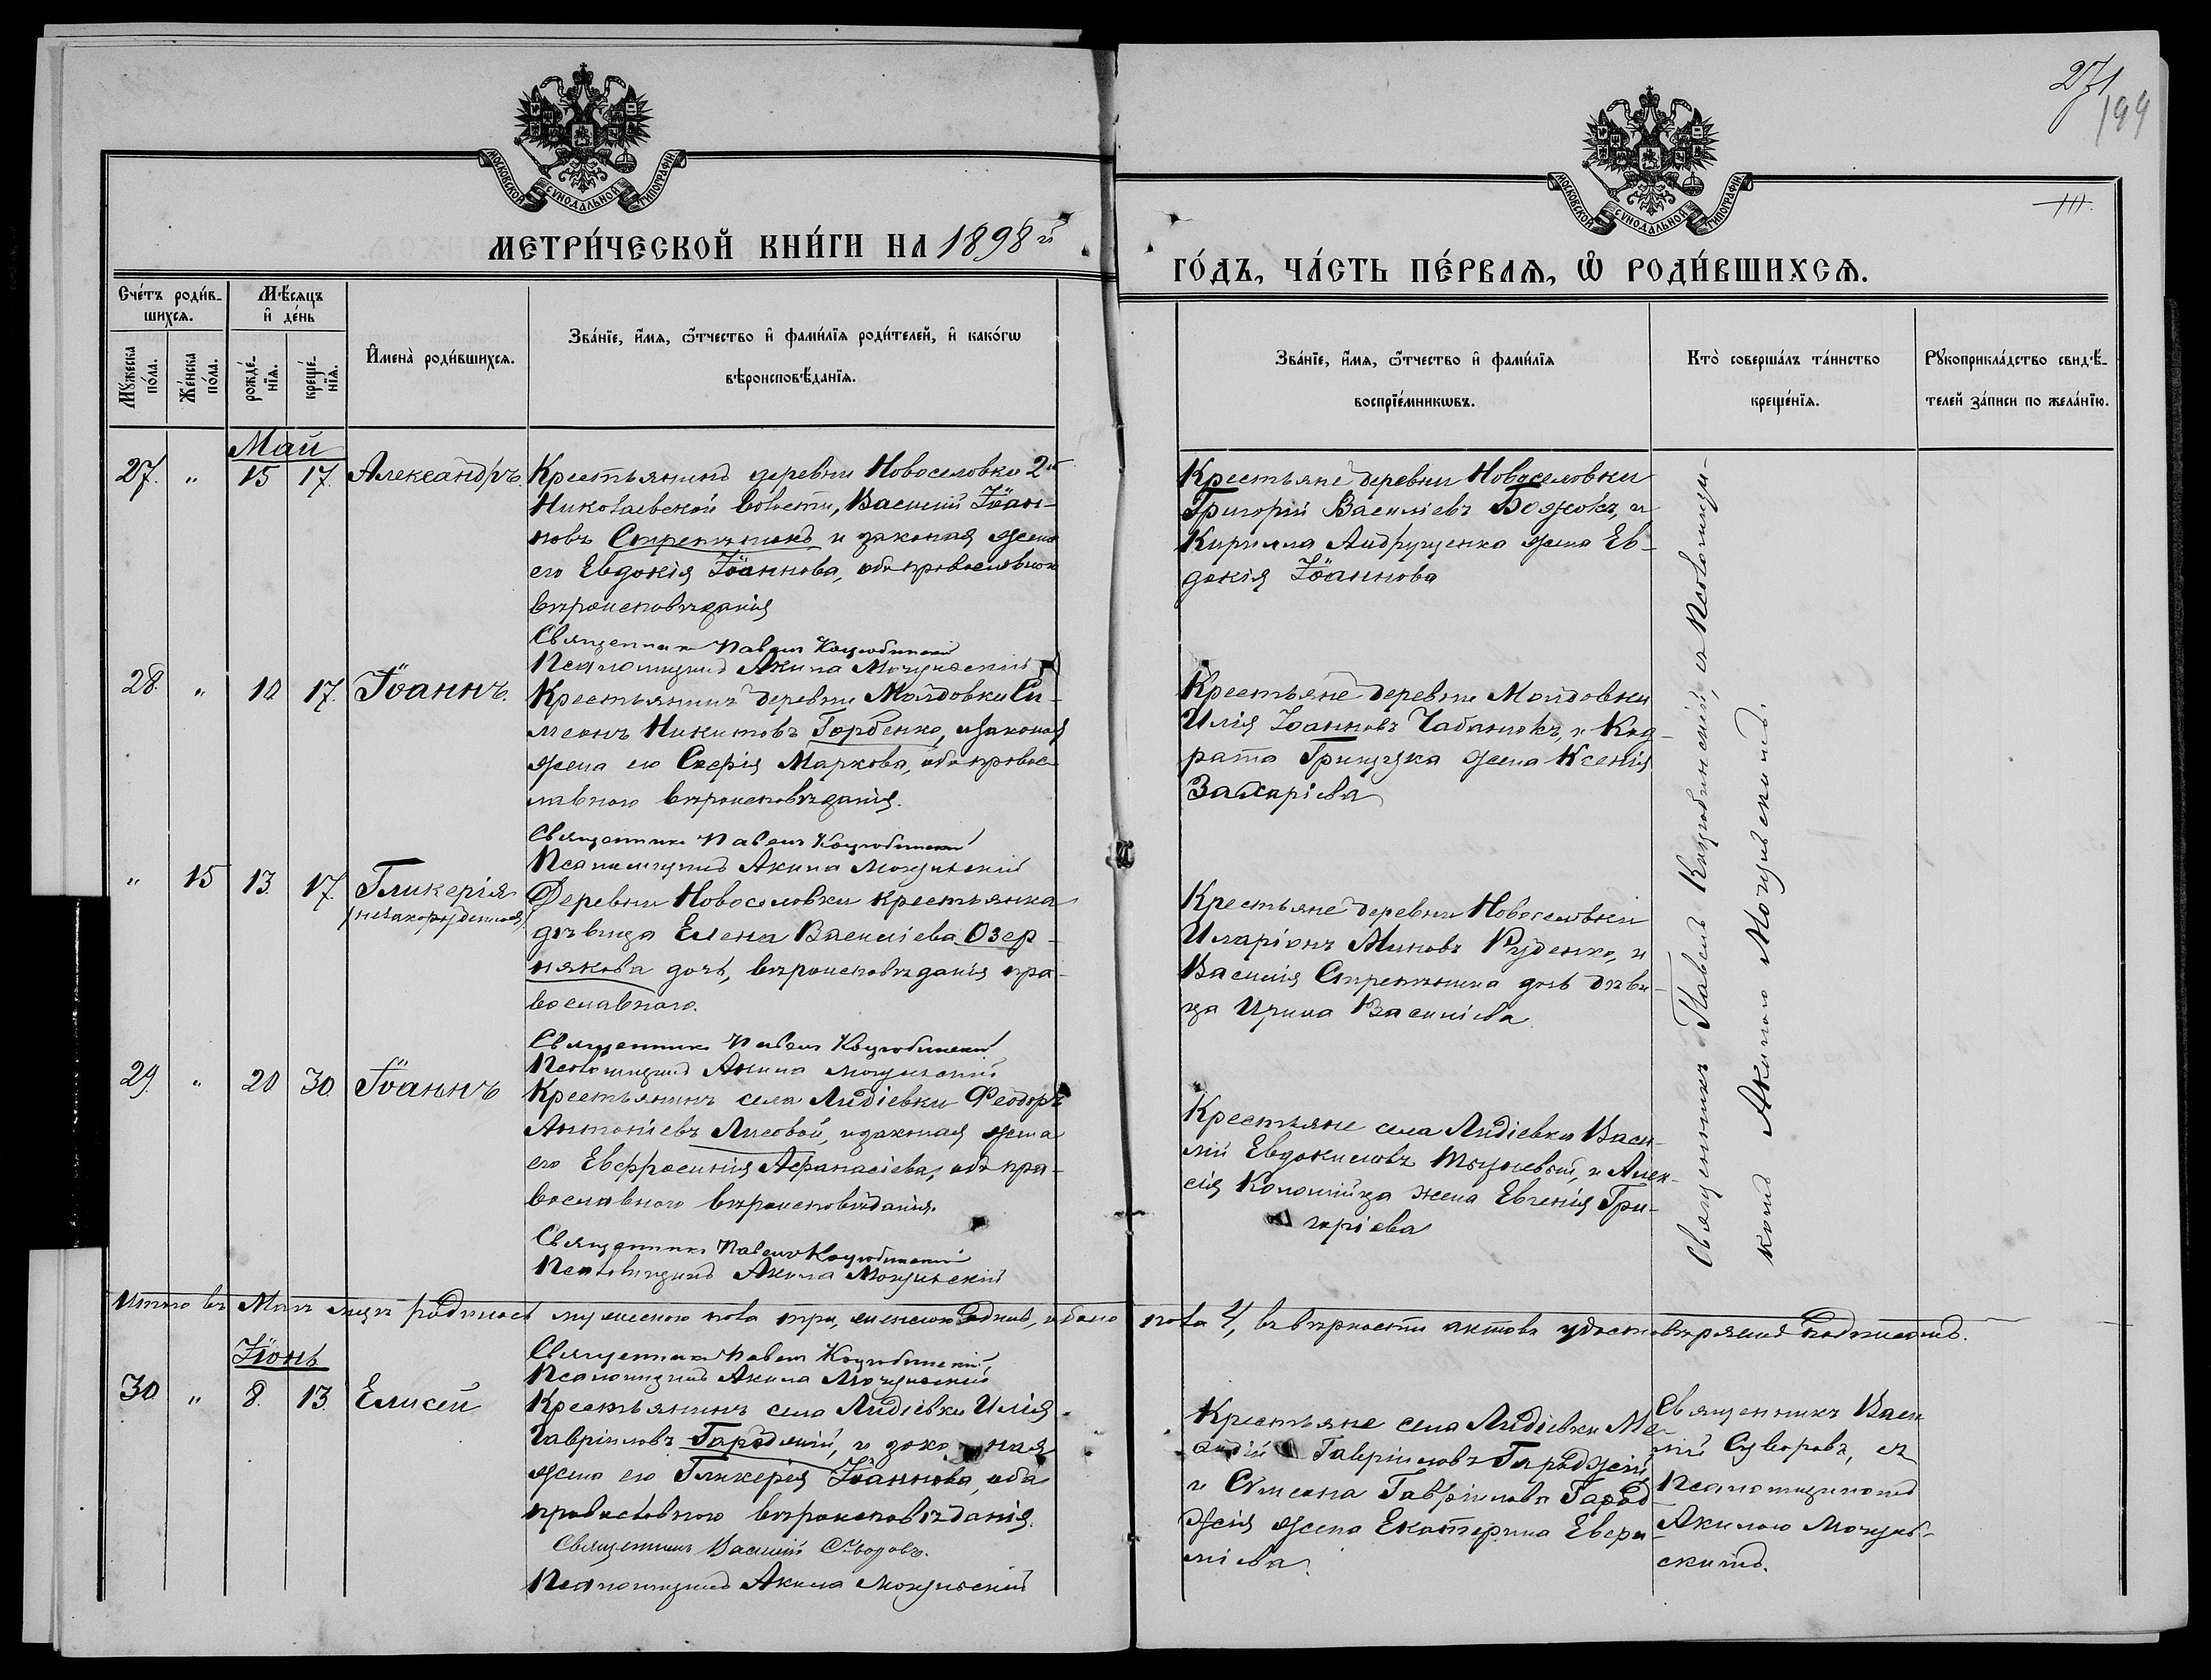 271
199
МОСКОВСКОЙ СѴНОДАЛЬНОЙ ТИПОГРАФІИ.
МОСКОВСКОЙ СѴНОДАЛЬНОЙ ТИПОГРАФІИ.
III.
МЕТРИ́ЧЕСКОЙ КНИ́ГИ НА 1898й
ГО́ДЪ, ЧА́СТЬ ПЕ́РВАѦ, Ѡ҆ РОДИ́ВШИХСѦ.
Сче́тъ роди́в-
шихсѧ.
Мꙋ́жеска по́ла.
Же́нска по́ла.
Мѣ́сѧцъ
и҆ де́нь
рожде́-
нїѧ.
креще́-
нїѧ.
И҆мена̀ роди́вшихсѧ.
Зва́нїе, и҆́мѧ, ѻ҆́тчество и҆ фами́лїѧ роди́телей, и҆ како́гѡ
вѣроисповѣ́данїѧ.
Зва́нїе, и҆́мѧ, ѻ҆́тчество и҆ фами́лїѧ
воспрїе́мникѡвъ.
Кто̀ соверша́лъ та́инство
креще́нїѧ.
Рꙋкоприкла́дство свидѣ́-
телей за́писи по жела́нїю.
Май
27. " 15 17. Александръ.
Крестьянинъ деревни Новоселовки 2й
Николаевской волости, Василій Іоан-
новъ Стрепетокъ и законная жена
его Евдокія Іоаннова, оба православнаго
вѣроисповѣданія
Священникъ Павелъ Коцюбинскій
Псаломщикъ Акила Мочульскій
Крестьяне деревни Новоселовки
Григорій Василіевъ Божокъ, и
Кирилла Андрущенка жена Ев-
докія Іоаннова
28. " 10 17. Іоаннъ.
Крестьянинъ деревни Молдовки Си-
меонъ Никитовъ Горбенко, и законная
жена его Софія Маркова, оба правос-
лавного вѣроисповѣданія.
Священникъ Павелъ Коцюбинскій
Псаломщикъ Акила Мочульскій
Крестьяне деревни Молдовки
Илія Іоанновъ Чабанюкъ, и Код-
рата Грищука жена Ксенія
Захаріева
" 15 13 17. Гликерія
(незакорожденная)
Деревни Новоселовки крестьянка
дѣвица Елена Василіева Озер-
някова дочь, вѣроисповѣданія пра-
вославнаго.
Священникъ Павелъ Коцюбинскій
Псаломщикъ Акила Мочульскій
Крестьяне деревни Новоселовки
Иларіонъ Миновъ Руденко, и
Василія Стрепетка дочь дѣви-
ца Ирина Василіева
29. " 20 30. Іоаннъ
Крестьянинъ села Лидіевки Феодоръ
Антоніевъ Лисовой, и законная жена
его Евфросинія Афанасіева, оба пра-
вославного вѣроисповѣданія.
Священникъ Павелъ Коцюбинскій
Псаломщикъ Акила Мочульскій
Крестьяне села Лидіевки Васи-
лій Евдокимовъ и Алек-
сія Коломійца жена Евгенія Гри-
горіева
Священникъ Павелъ Коцюбинскій, съ Псаломщи-
комъ Акилою Мочульскимъ.
Итого въ Маѣ мцѣ родилось мужескаго пола три, женскаго одна, обоего пола 4, въ вѣрности актовъ удостовѣряемъ подписомъ.
Священникъ Павелъ Коцюбинскій,
Псаломщикъ Акила Мочульскій
Іюнь
30 " 8. 13. Елисей
Крестьянинъ села Лидіевки Илія
Гавріиловъ Гараджій, и законная
жена его Гликерія Іоаннова, оба
православного вѣроисповѣданія.
Священникъ Василій Суворовъ.
Псаломщикъ Акила Мочульскій
Крестьяне села Лидіевки Ме-
Гавріиловъ Гараджій
и Симеона Гавріилова Гарад-
жія жена Екатерина
Священникъ Васи-
лій Суворовъ, съ
Псаломщикомъ
Акилою Мочуль-
скимъ.